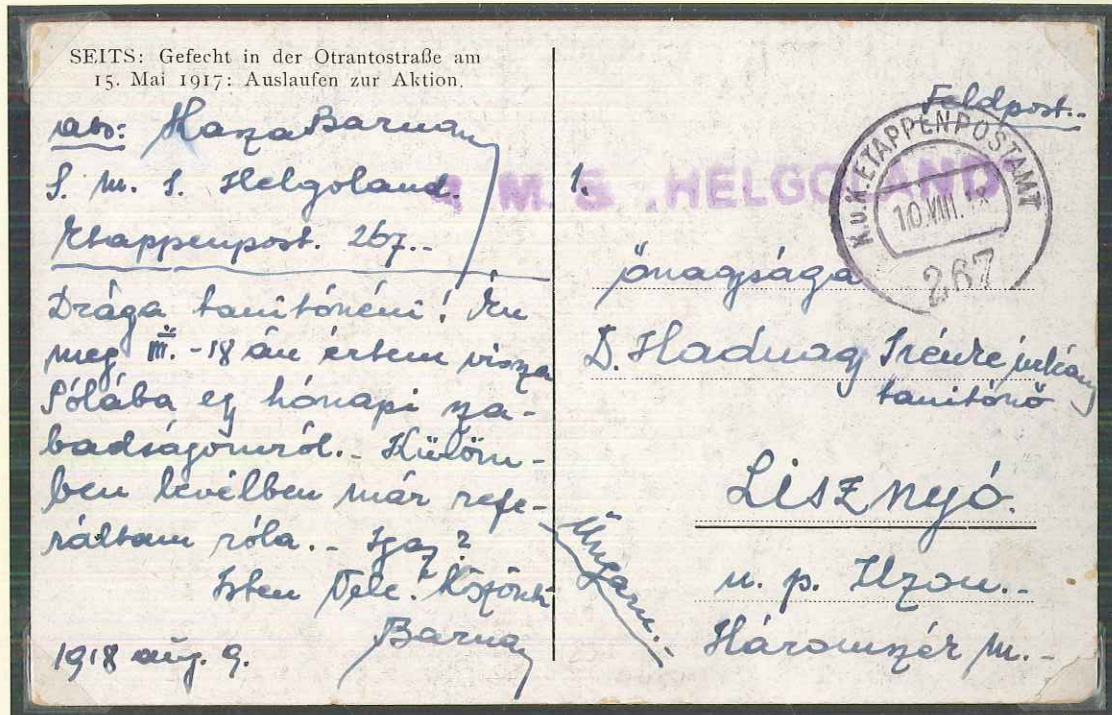 SEITS: Gefecht in der Otrantostraße am
15. Mai 1917: Auslaufen zur Aktion.
abs: Kaza Barna
S. M. S. Helgoland.
Etappenpost. 267.-
Drága tanitónéni! Én
meg III. -18 án értem vissza
Pólába egy hónapi sza-
badságomról.- Külöm-
ben levélben már refe-
ráltam róla.- Igaz?
Isten Vele. Köszönti
Barna
1918 aug. 9.
Feldpost..
1.
S. M. S. HELGOLAND
K.u.K. ETAPPENPOSTAMT
10.VIII.18
267
őnagysága
D. Hadnagy Irénke
tanitónő
Lisznyó.
u. p. Uzon.-
Háromszér m.-
Ungarn.-